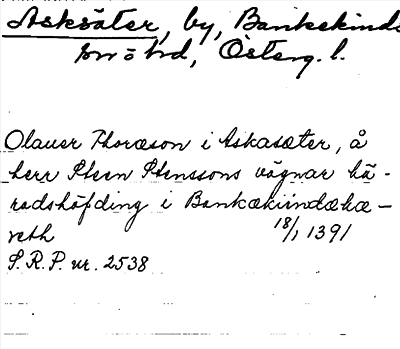 Asksäter, by, Bankekinds
sn o hd, Österg. l.
Olauer Thoræson i Askasæter, å
herr Steen Stenssons vägnar hä-
radshöfding i Bankækiindæhæ-
reth 18/1 1391
S.R.P. nr. 2538